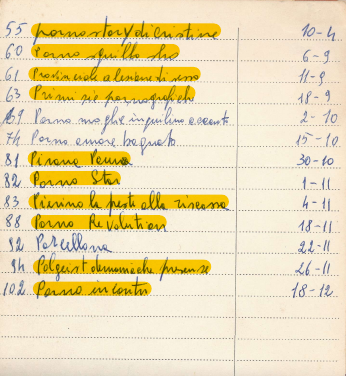 55 pornostory di cristine 10-4
60 Porno squillo sho 6-9
61 Provinciale a lezione di sesso 11-9
63 Primizie pornografiche 18-9
69 Porno moglie inquilino accanto 2-10
74 Porno amore bagnato 15-10
81 Pirana Paura 30-10
82 Porno Star 1-11
83 Pierino la peste alla riscossa 4-11
88 Porno Revolution 18-11
92 Porcellona 22-11
94 demoniache presense 26-11
102 Porno incontri 18-12